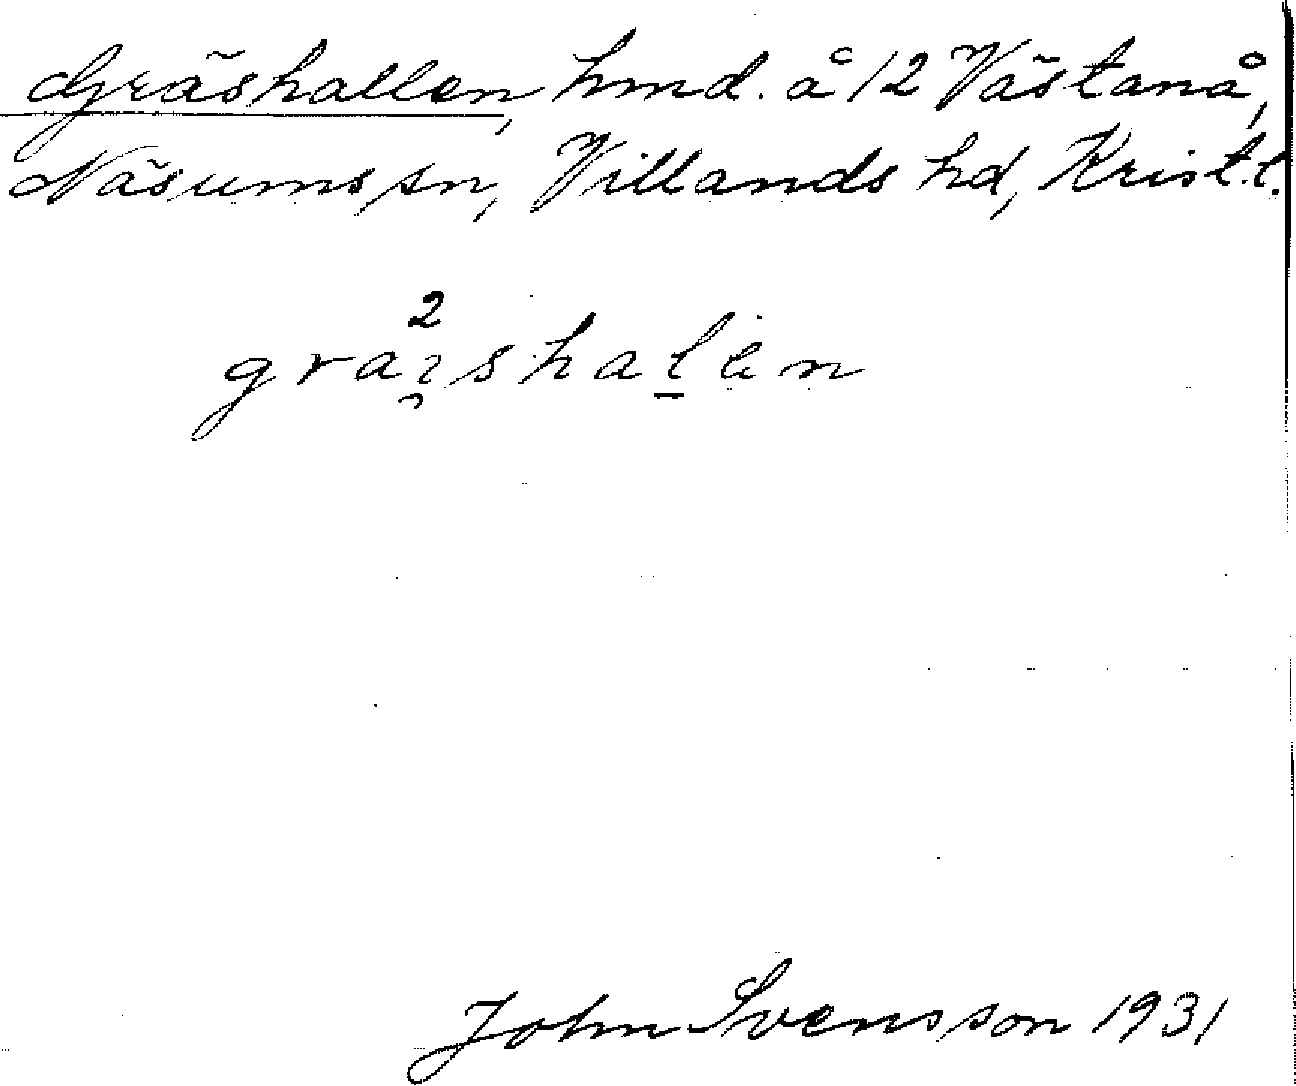 Gräshallen, hmd. å 12 Västanå,
Näsums sn, Villands hd, Krist. l.
2
John Svensson 1931